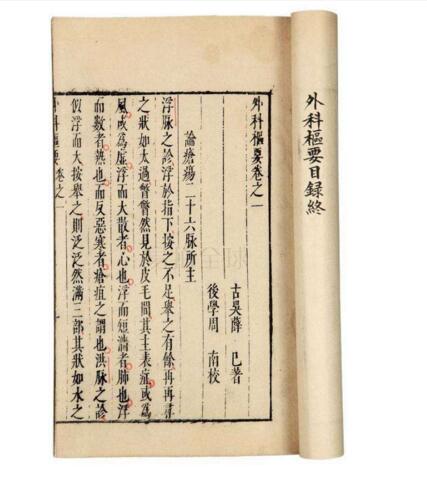 外科樞要目錄終
外科樞要卷之一
古吳薛 已著
後學周 南校
論瘡瘍二十六脈所主
浮脈之診浮於指下按之不足舉之有餘再再尋
之狀如太過瞥瞥然見於皮毛間其主表症或為
風或為虛浮而大散者心也浮而短濇者肺也浮
而數者熱也而反惡寒者瘡疽之謂也洪脈之診
似浮而大按舉之則泛泛然滿三部其狀如水之
外科樞要卷之一